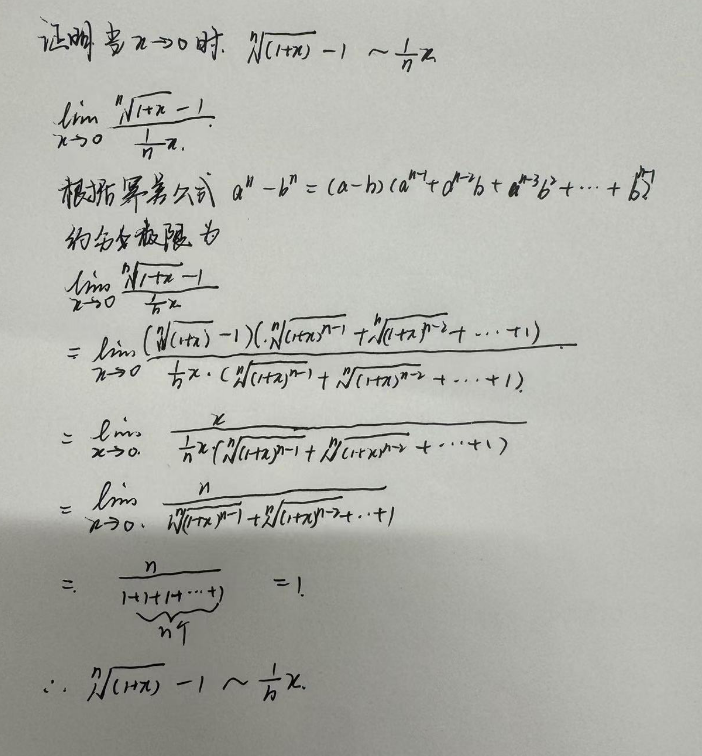 证明当 x→0 时. ⁿ√(1+x) - 1 ~ 1/n x
lim x→0 (ⁿ√(1+x) - 1) / (1/n x).
根据幂差公式 aⁿ - bⁿ = (a-b)(aⁿ⁻¹ + aⁿ⁻²b + aⁿ⁻³b² + ⋯ + bⁿ⁻¹)
极限为
lim x→0 (ⁿ√(1+x) - 1) / (1/n x)
= lim x→0 (ⁿ√(1+x) - 1)(ⁿ√(1+x)ⁿ⁻¹ + ⁿ√(1+x)ⁿ⁻² + ⋯ + 1) / (1/n x · (ⁿ√(1+x)ⁿ⁻¹ + ⁿ√(1+x)ⁿ⁻² + ⋯ + 1))
= lim x→0. x / (1/n x·(ⁿ√(1+x)ⁿ⁻¹ + ⁿ√(1+x)ⁿ⁻² + ⋯ + 1))
= lim x→0. n / (ⁿ√(1+x)ⁿ⁻¹ + ⁿ√(1+x)ⁿ⁻² + ⋯ + 1)
= n / (1+1+1+⋯+1) = 1.
n个
∴ ⁿ√(1+x) - 1 ~ 1/n x.